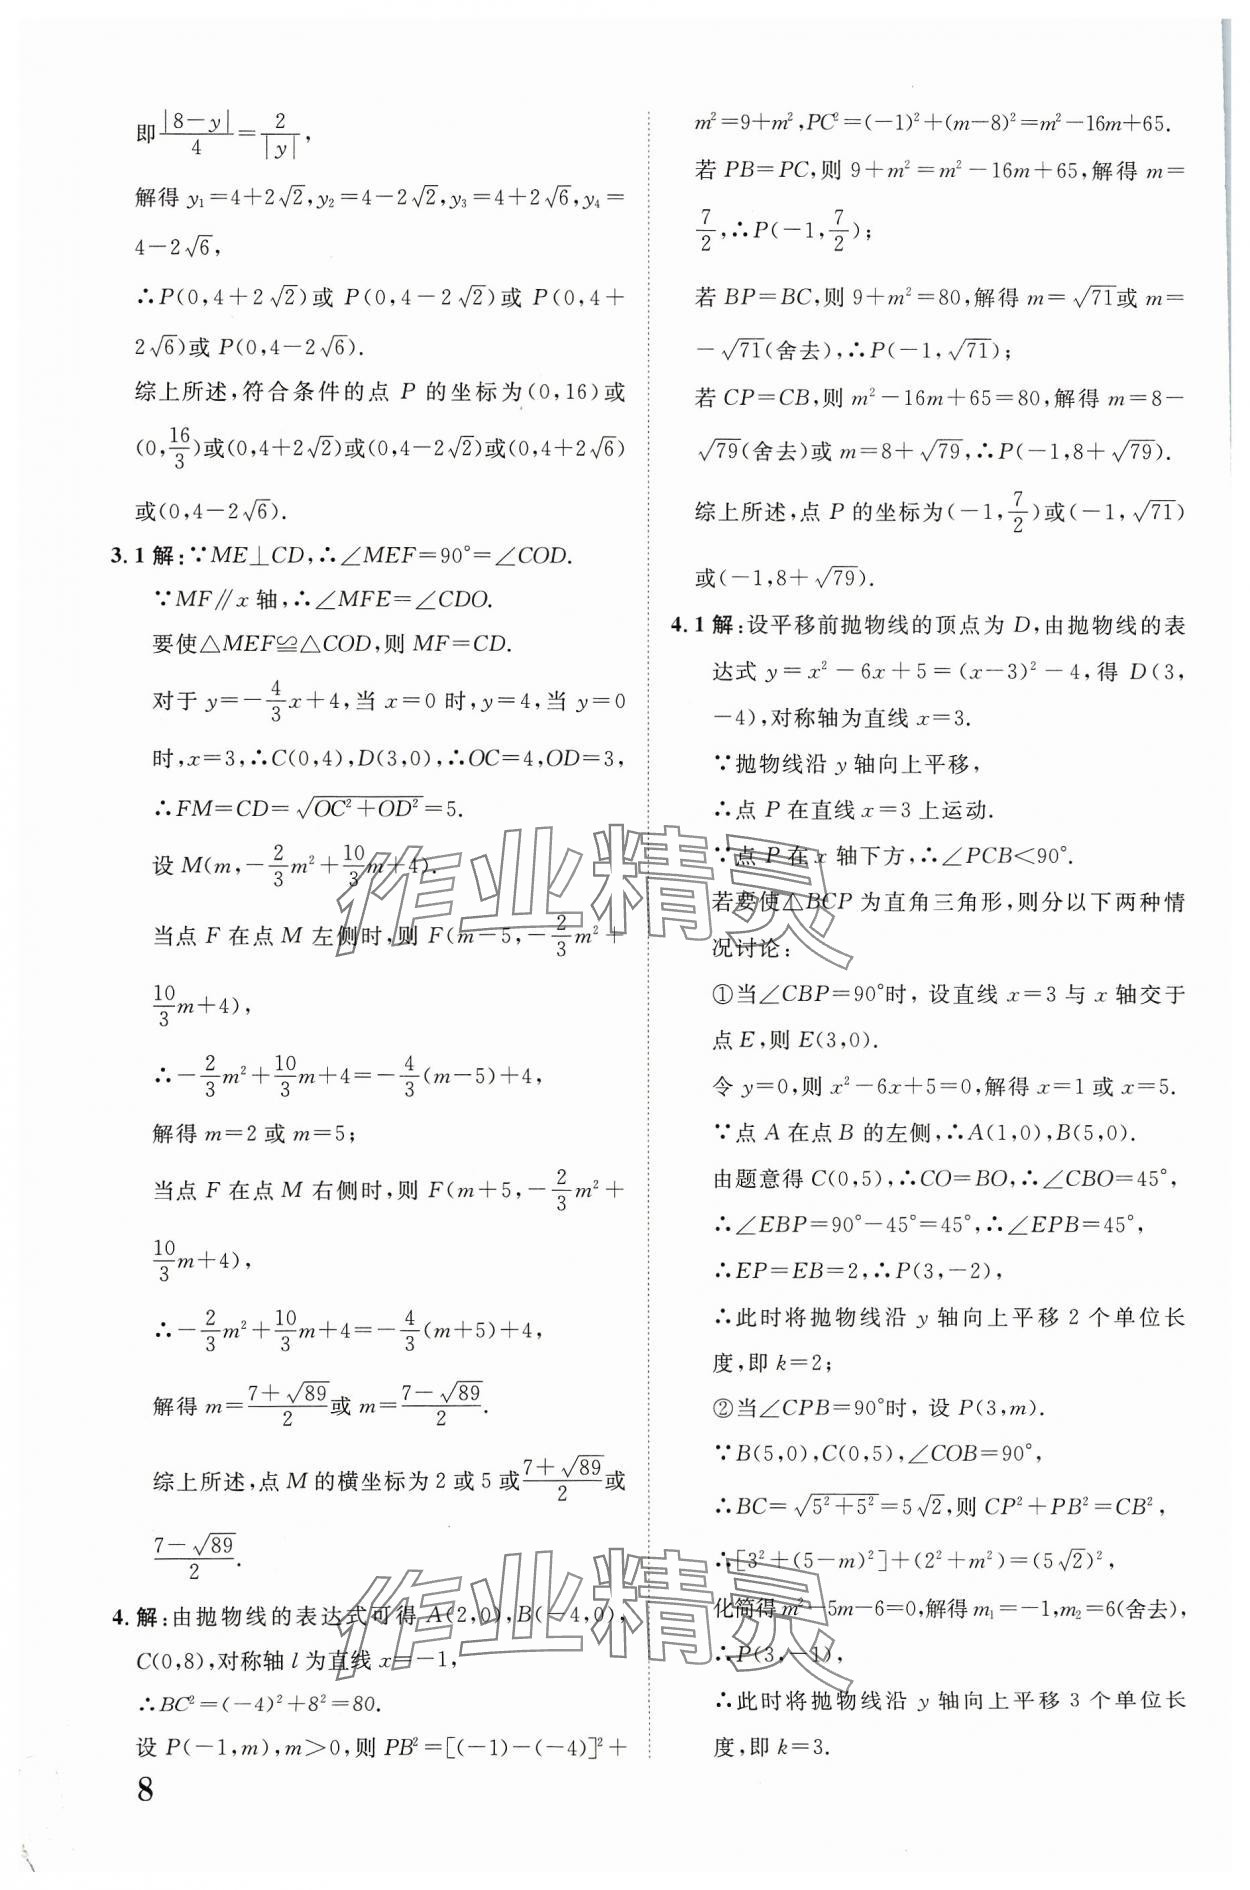 即|8－y|/4＝2/|y|,
解得 y₁＝4＋2√2,y₂＝4－2√2,y₃＝4＋2√6,y₄＝
4－2√6,
∴P(0,4＋2√2)或 P(0,4－2√2)或 P(0,4＋
2√6)或 P(0,4－2√6).
综上所述,符合条件的点 P 的坐标为(0,16)或
(0,16/3)或(0,4＋2√2)或(0,4－2√2)或(0,4＋2√6)
或(0,4－2√6).
3.1 解:∵ME⊥CD,∴∠MEF＝90°＝∠COD.
∵MF∥x 轴,∴∠MFE＝∠CDO.
要使△MEF≌△COD,则 MF＝CD.
对于 y＝－4/3x＋4,当 x＝0 时,y＝4,当 y＝0
时,x＝3,∴C(0,4),D(3,0),∴OC＝4,OD＝3,
∴FM＝CD＝√(OC²＋OD²)＝5.
设 M(m,－2/3m²＋10/3m＋4).
当点 F 在点 M 左侧时,则 F(m－5,－2/3m²＋
10/3m＋4),
∴－2/3m²＋10/3m＋4＝－4/3(m－5)＋4,
解得 m＝2 或 m＝5;
当点 F 在点 M 右侧时,则 F(m＋5,－2/3m²＋
10/3m＋4),
∴－2/3m²＋10/3m＋4＝－4/3(m＋5)＋4,
解得 m＝(7＋√89)/2或 m＝(7－√89)/2.
综上所述,点 M 的横坐标为 2 或 5 或(7＋√89)/2或
(7－√89)/2.
4. 解:由抛物线的表达式可得 A(2,0),B(－4,0),
C(0,8),对称轴 l 为直线 x＝－1,
∴BC²＝(－4)²＋8²＝80.
设 P(－1,m),m＞0,则 PB²＝[(－1)－(－4)]²＋
8
m²＝9＋m²,PC²＝(－1)²＋(m－8)²＝m²－16m＋65.
若 PB＝PC,则 9＋m²＝m²－16m＋65,解得 m＝
7/2,∴P(－1,7/2);
若 BP＝BC,则 9＋m²＝80,解得 m＝√71或 m＝
－√71(舍去),∴P(－1,√71);
若 CP＝CB,则 m²－16m＋65＝80,解得 m＝8－
√79(舍去)或 m＝8＋√79,∴P(－1,8＋√79).
综上所述,点 P 的坐标为(－1,7/2)或(－1,√71)
或(－1,8＋√79).
4.1 解:设平移前抛物线的顶点为 D,由抛物线的表
达式 y＝x²－6x＋5＝(x－3)²－4,得 D(3,
－4),对称轴为直线 x＝3.
∵抛物线沿 y 轴向上平移,
∴点 P 在直线 x＝3 上运动.
∵点 P 在 x 轴下方,∴∠PCB＜90°.
若要使△BCP 为直角三角形,则分以下两种情
况讨论:
①当∠CBP＝90°时,设直线 x＝3 与 x 轴交于
点 E,则 E(3,0).
令 y＝0,则 x²－6x＋5＝0,解得 x＝1 或 x＝5.
∵点 A 在点 B 的左侧,∴A(1,0),B(5,0).
由题意得 C(0,5),∴CO＝BO,∴∠CBO＝45°,
∴∠EBP＝90°－45°＝45°,∴∠EPB＝45°,
∴EP＝EB＝2,∴P(3,－2),
∴此时将抛物线沿 y 轴向上平移 2 个单位长
度,即 k＝2;
②当∠CPB＝90°时,设 P(3,m).
∵B(5,0),C(0,5),∠COB＝90°,
∴BC＝√(5²＋5²)＝5√2,则 CP²＋PB²＝CB²,
∴[3²＋(5－m)²]＋(2²＋m²)＝(5√2)²,
化简得 m²－5m－6＝0,解得 m₁＝－1,m₂＝6(舍去),
∴P(3,－1),
∴此时将抛物线沿 y 轴向上平移 3 个单位长
度,即 k＝3.
作业精灵
作业精灵